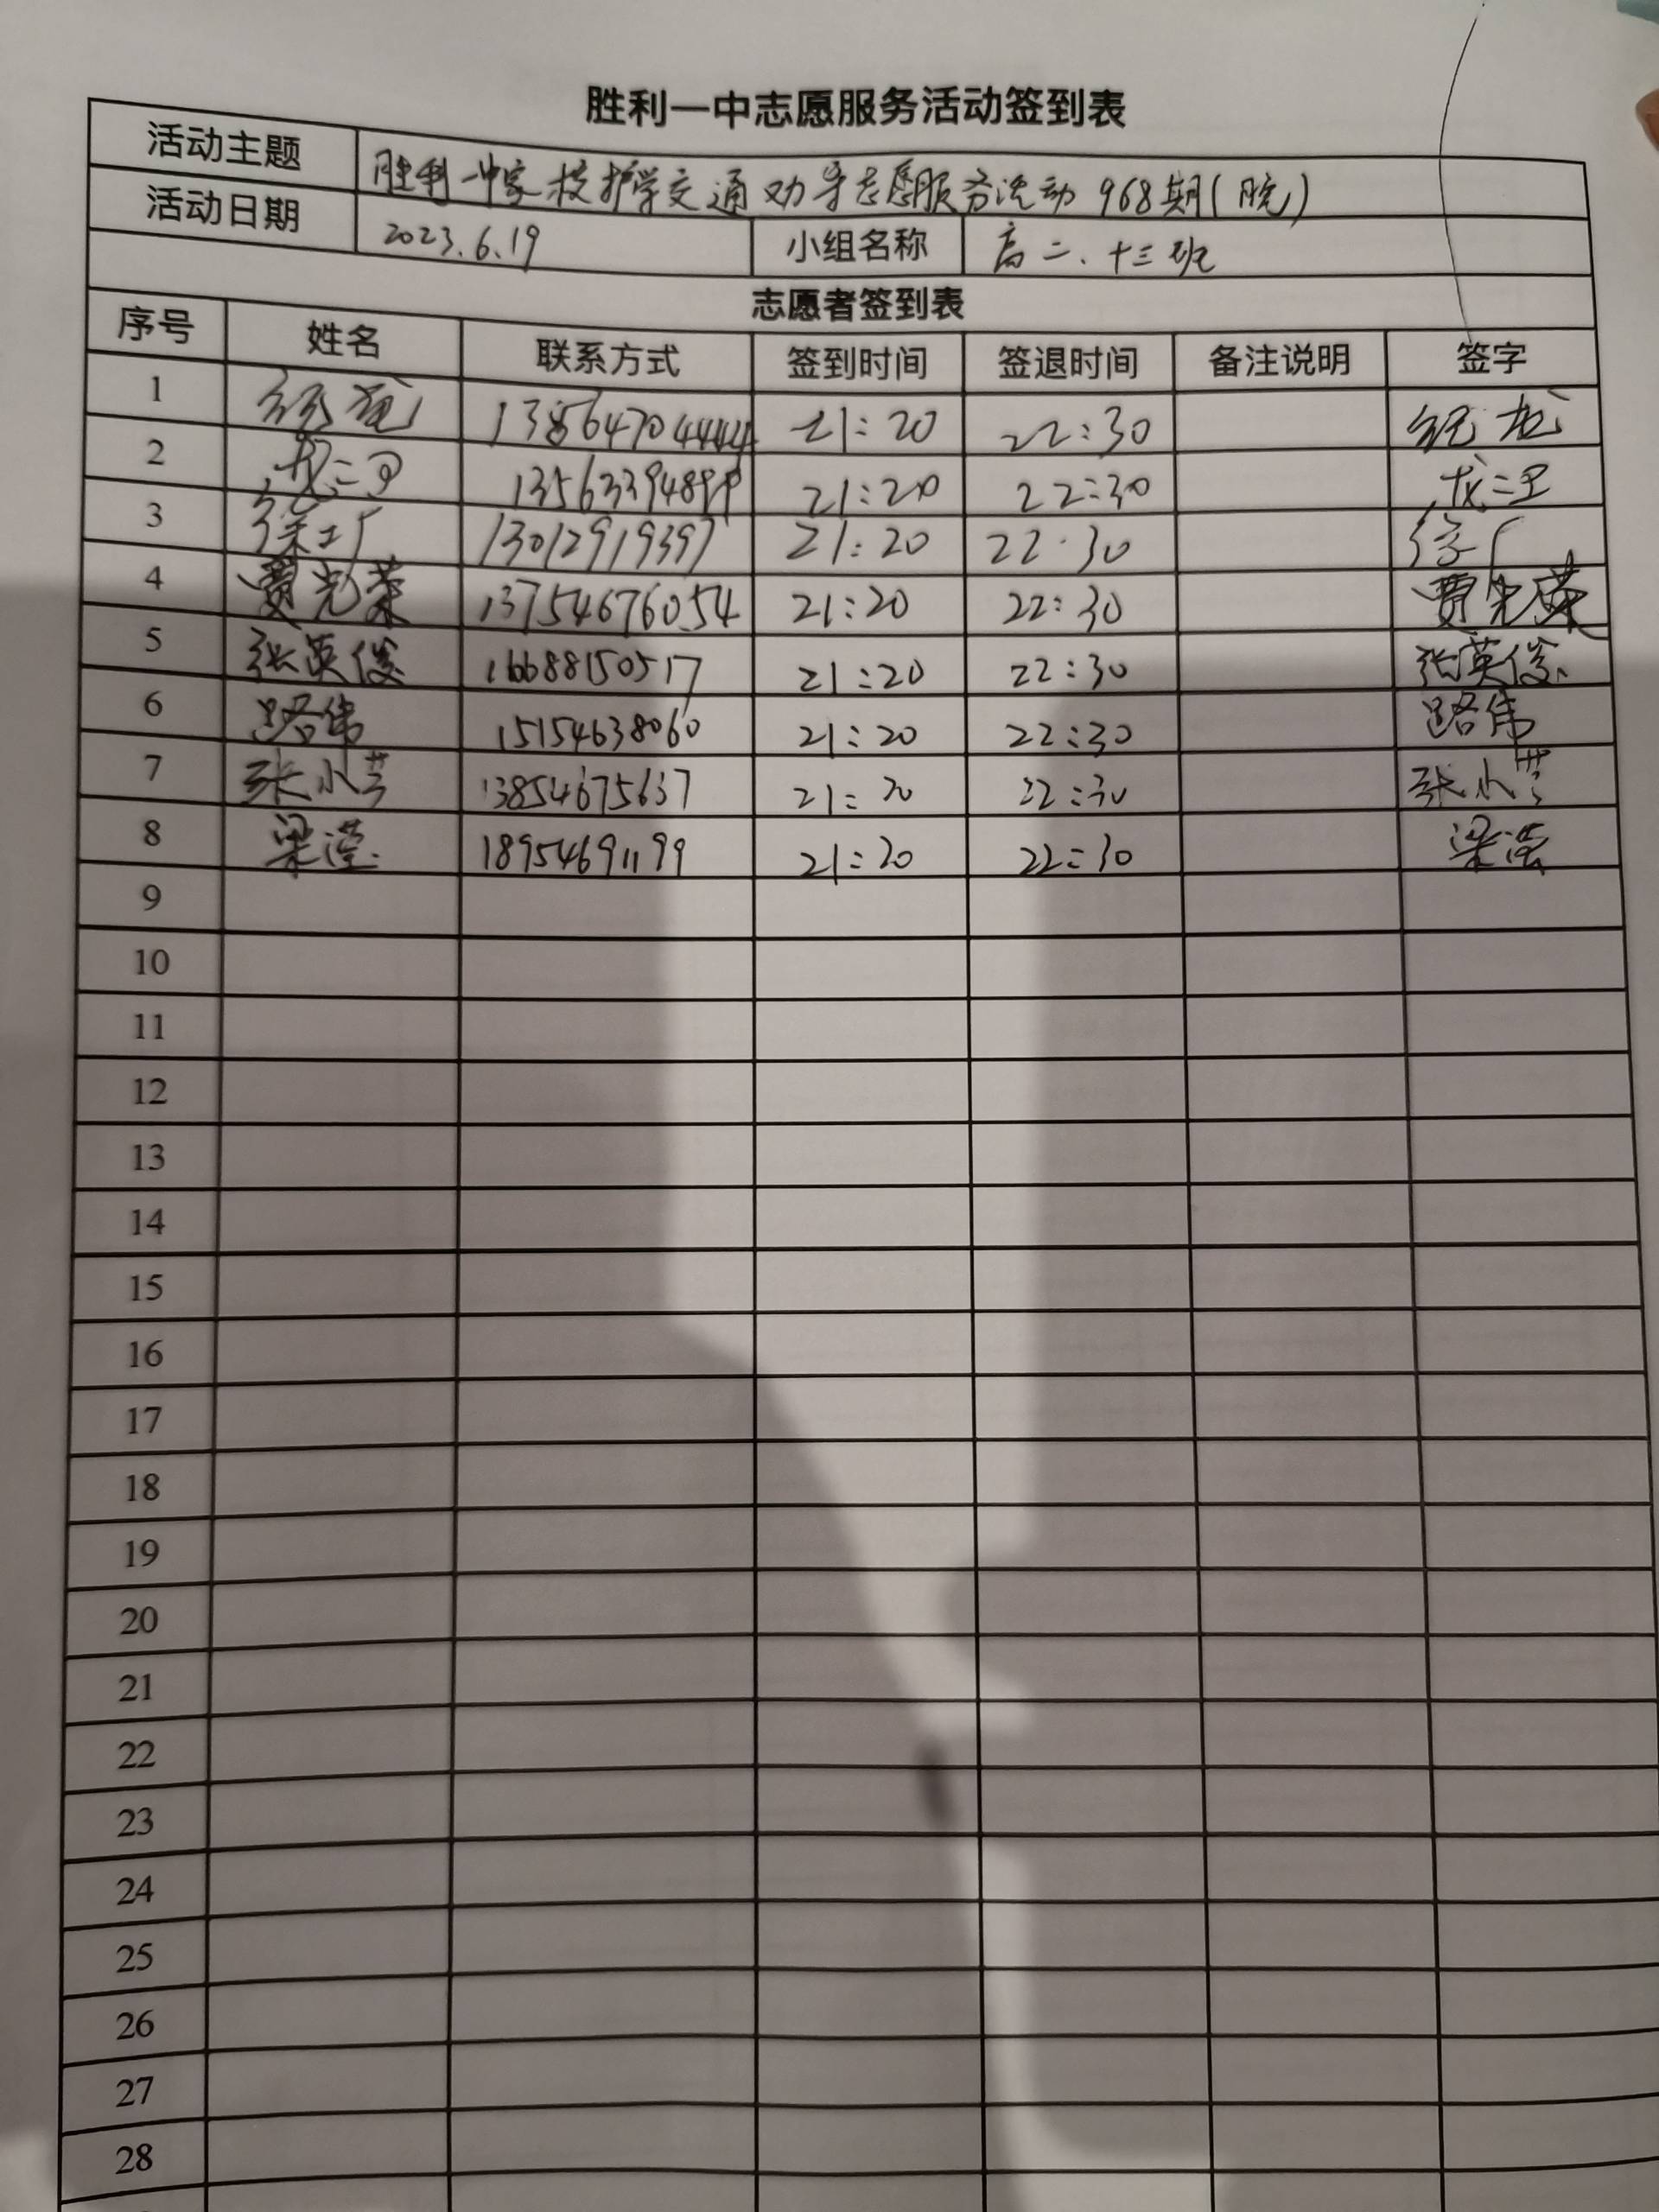 胜利一中志愿服务活动签到表
活动主题 胜利一中家校护学交通劝导志愿服务活动968期(晚)
活动日期 2023.6.19 小组名称 高二、十三班
志愿者签到表
序号 姓名 联系方式 签到时间 签退时间 备注说明 签字
1 21:20 22:30
2 13563394899 21:20 22:30
3 13012919397 21:20 22:30
4 贾光荣 13754676054 21:20 22:30 贾光荣
5 张英俊 16688150517 21:20 22:30 张英俊
6 路伟 15154638060 21:20 22:30 路伟
7 张小芳 13854675637 21:20 22:30 张小芳
8 梁滢 18954691199 21:20 22:30 梁滢
9
10
11
12
13
14
15
16
17
18
19
20
21
22
23
24
25
26
27
28